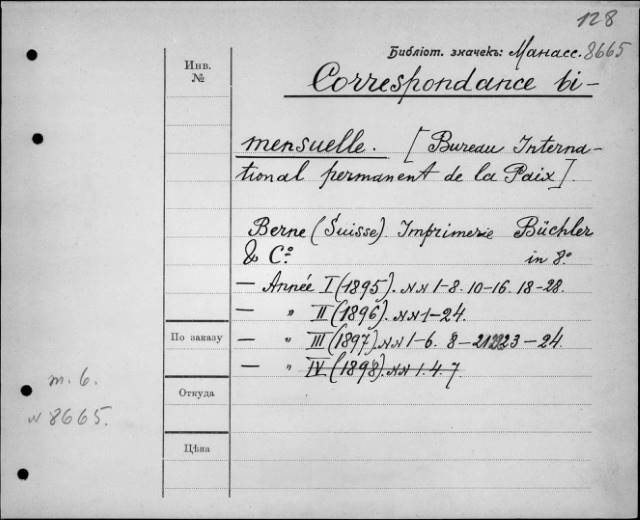 128
Библіот. значекъ: Манасс. 8665
Инв.
№
Correspondance bi-
mensuelle. [Bureau Interna-
tional permanent de la Paix].
Berne (Suisse). Imprimerie Büchler
& Cº. in 8º
— Année I (1895). NN 1-8. 10-16. 18-28.
— " II (1896). NN 1-24.
По заказу
— " III (1897). NN 1-6. 8-21 23-24.
— " IV (1898). NN 1. 4. 7.
m. 6.
N 8665.
Откуда
Цѣна